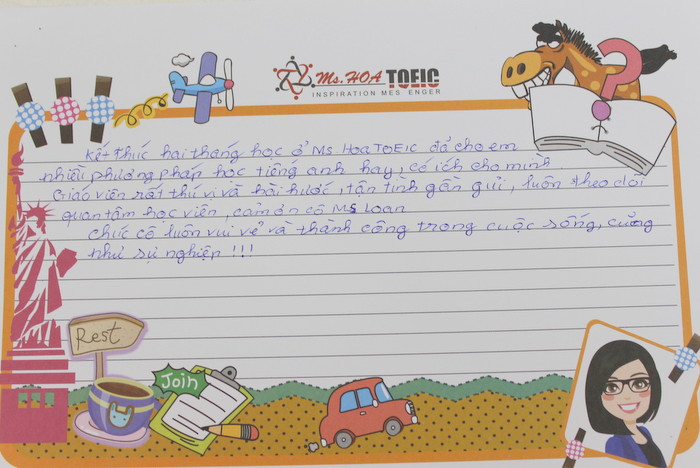 Ms. HOA TOEIC
INSPIRATION MES ENGER
kết thúc hai tháng học ở Ms Hoa TOEIC đã cho em
nhiều phương pháp học tiếng anh hay, có ích cho mình
Giáo viên rất thú vị và hài hước, tận tình gần gửi, luôn theo dõi
quan tâm học viên, cảm ơn cô Ms Loan
chúc cô luôn vui vẻ và thành công trong cuộc sống, cũng
như sự nghiệp !!!
Rest
Join